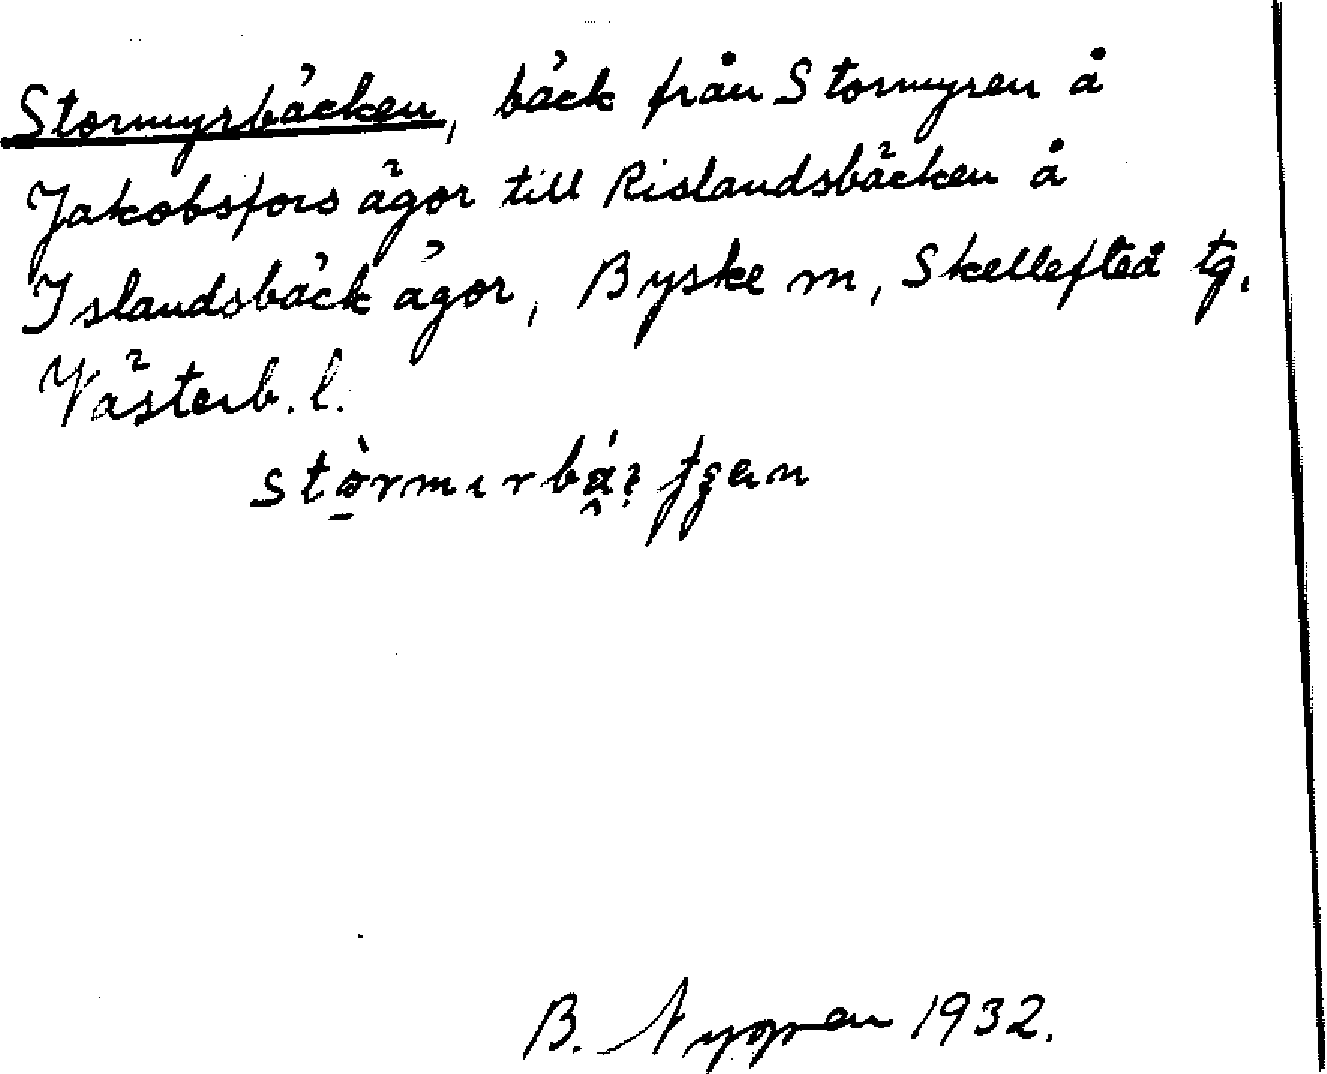 Stormyrbäcken, bäck från Stormyren å
Jakobsfors ägor till Rislandsbäcken å
Islandsbäck ägor, Byske m, Skellefteå tg.
Västerb. l.
B. Nygren 1932.